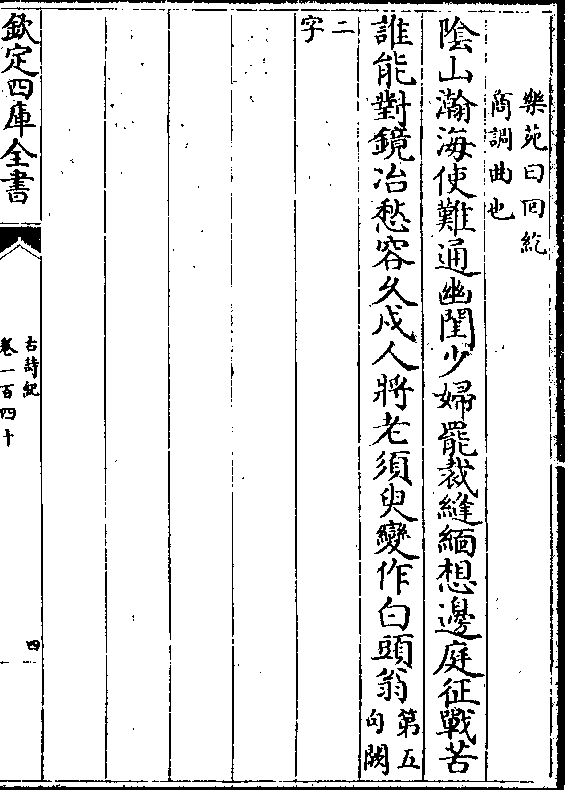 樂苑曰回紇
商調曲也
陰山瀚海使難通幽閨少婦罷裁縫緬想邊庭征戰苦
誰能對鏡冶愁容久戍人將老須臾變作白頭翁第五
句闕
二
字
欽定四庫全書
古詩紀
卷一百四十
四